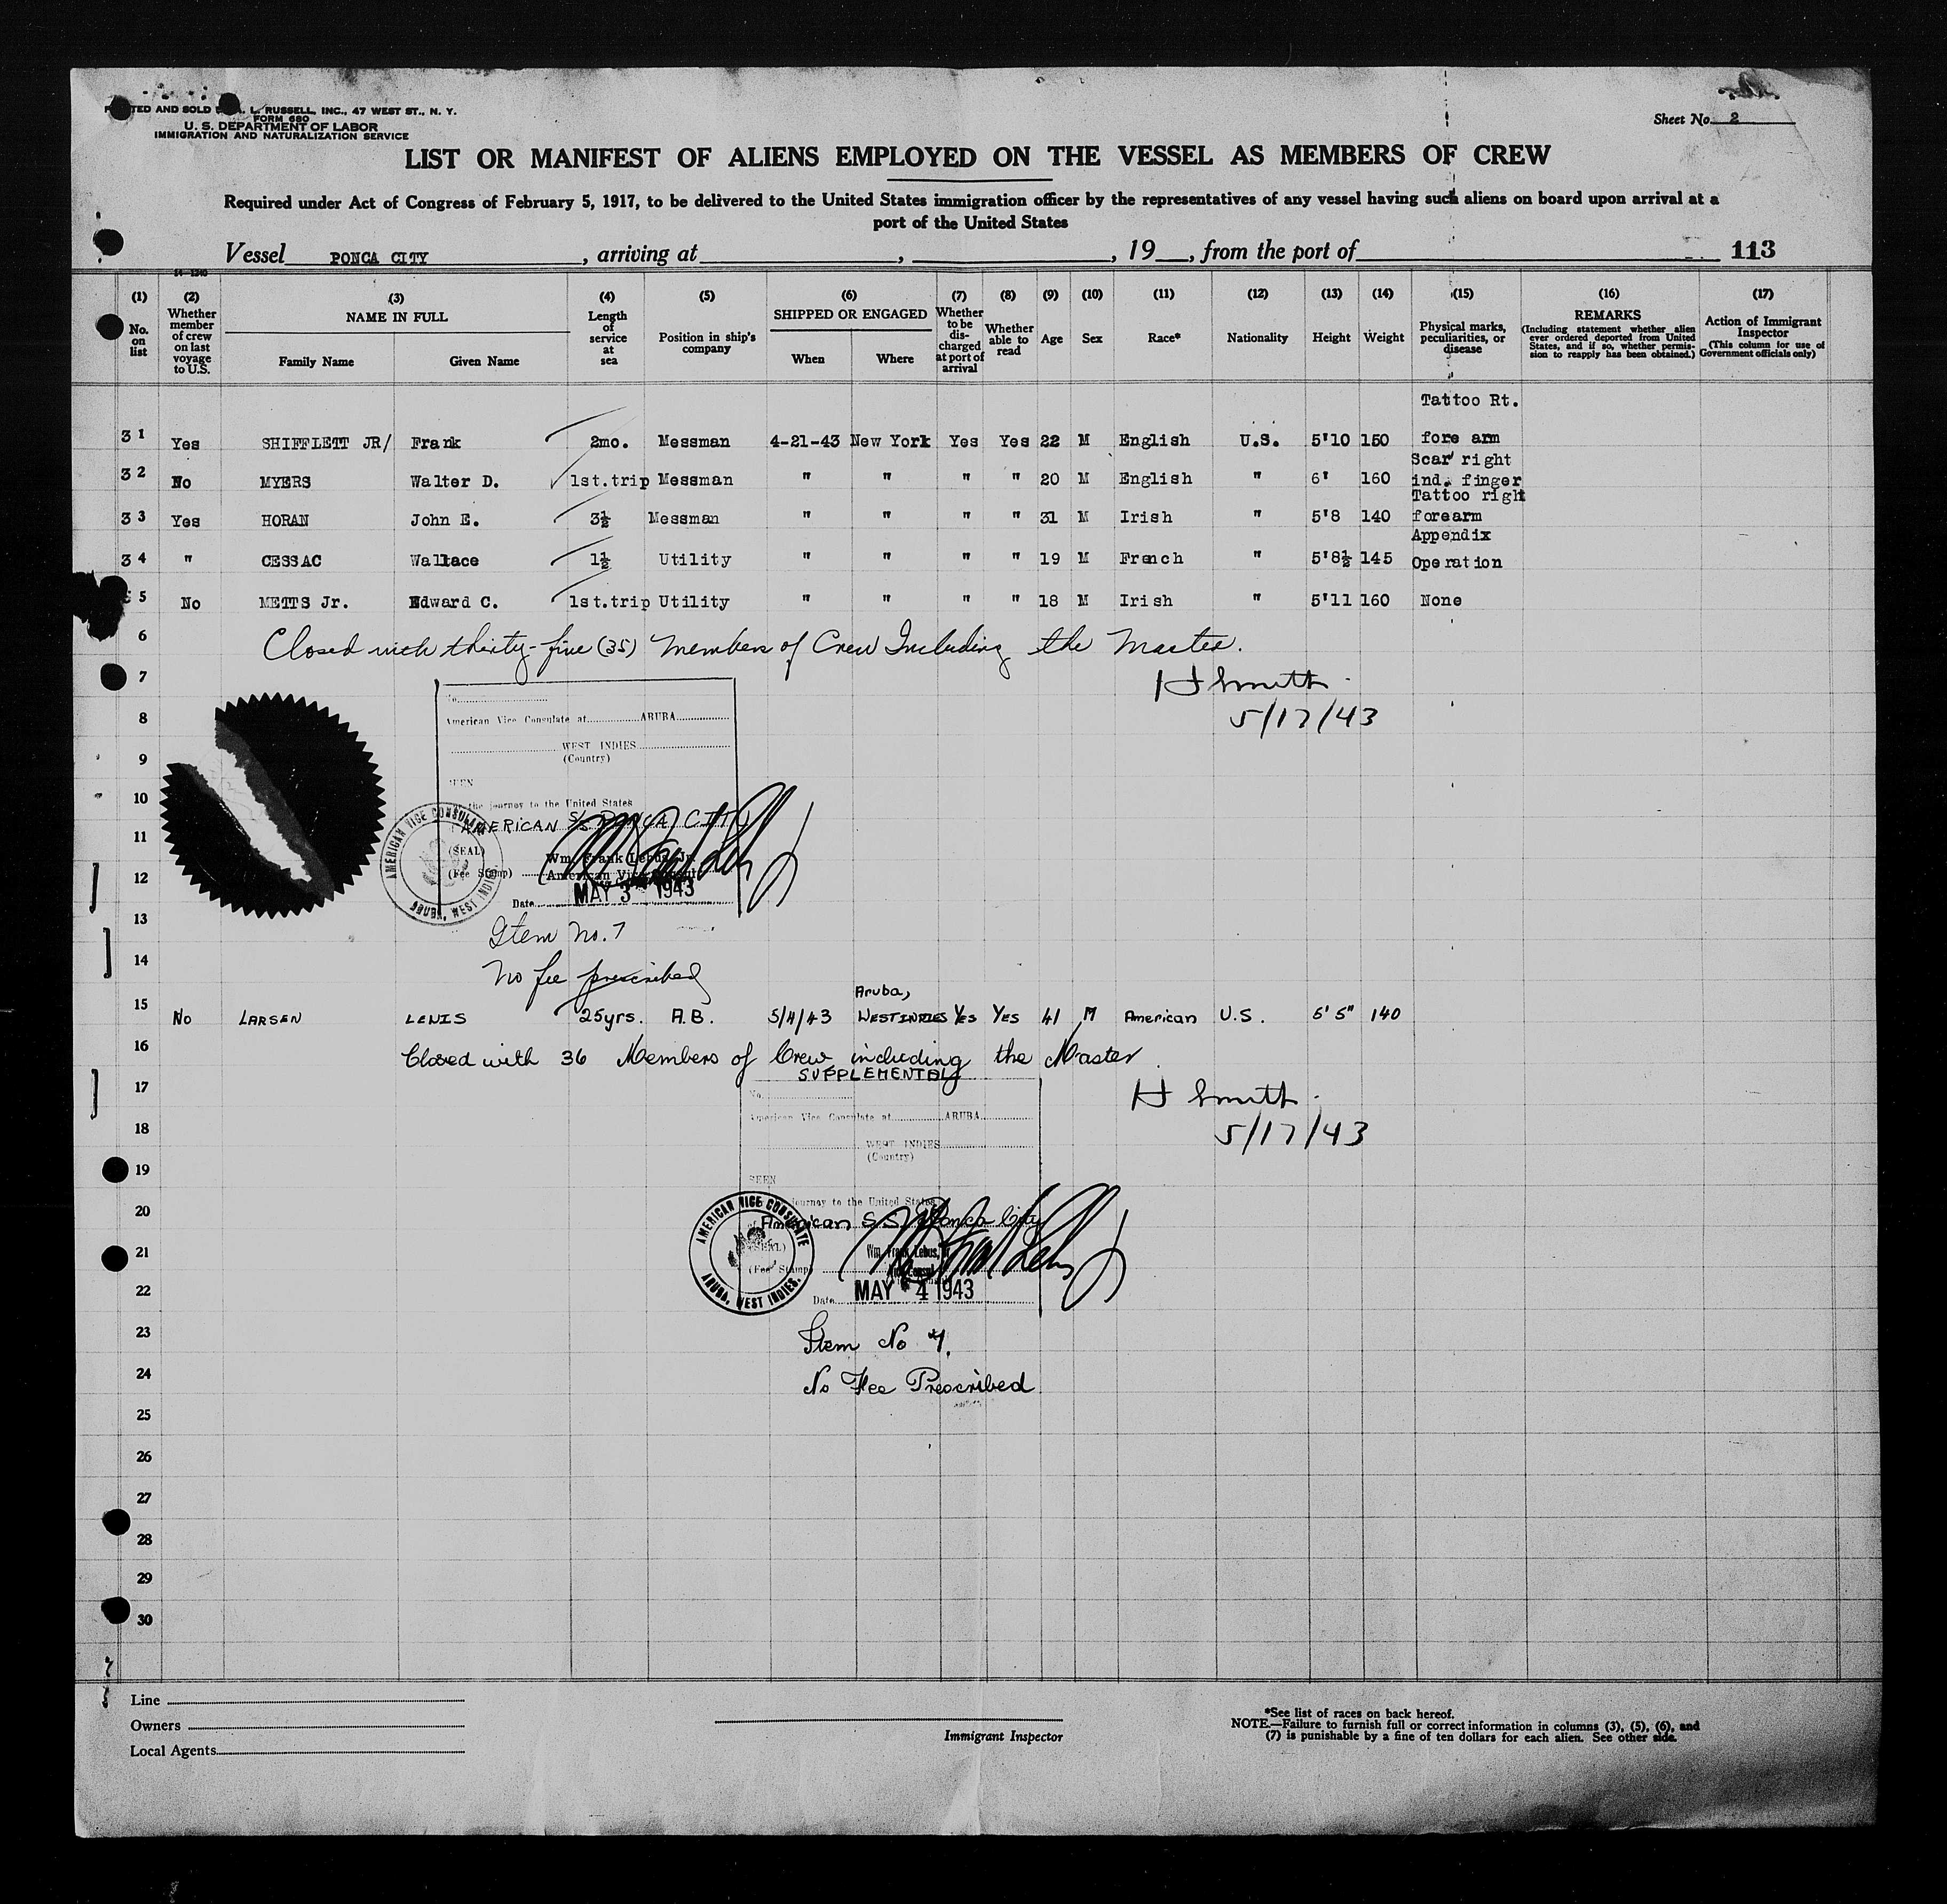 TED AND SOLD L. RUSSELL, INC., 47 WEST ST., N. Y.
FORM 680
U. S. DEPARTMENT OF LABOR
IMMIGRATION AND NATURALIZATION SERVICE
Sheet No. 2
LIST OR MANIFEST OF ALIENS EMPLOYED ON THE VESSEL AS MEMBERS OF CREW
Required under Act of Congress of February 5, 1917, to be delivered to the United States immigration officer by the representatives of any vessel having such aliens on board upon arrival at a
port of the United States
Vessel PONCA CITY, arriving at , , 19 , from the port of 113
(1) No. on list
(2) Whether member of crew on last voyage to U.S.
(3) NAME IN FULL Family Name Given Name
(4) Length of service at sea
(5) Position in ship's company
(6) SHIPPED OR ENGAGED When Where
(7) Whether to be discharged at port of arrival
(8) Whether able to read
(9) Age
(10) Sex
(11) Race*
(12) Nationality
(13) Height
(14) Weight
(15) Physical marks, peculiarities, or disease
(16) REMARKS (Including statement whether alien ever ordered deported from United States, and if so, whether permission to reapply has been obtained.)
(17) Action of Immigrant Inspector (This column for use of Government officials only)
Tattoo Rt.
31 Yes SHIFFLETT JR/ Frank 2mo. Messman 4-21-43 New York Yes Yes 22 M English U.S. 5'10 150 fore arm
Scar right
32 No MYERS Walter D. 1st.trip Messman " " " " 20 M English " 6' 160 ind. finger
Tattoo right
33 Yes HORAN John E. 3½ Messman " " " " 31 M Irish " 5'8 140 forearm
Appendix
34 " CESSAC Wallace 1½ Utility " " " " 19 M French " 5'8½ 145 Operation
5 No METTS Jr. Edward C. 1st.trip Utility " " " " 18 M Irish " 5'11 160 None
6 Closed with thirty-five (35) Members of Crew Including the Master.
7 H Smith
8 5/17/43
No.
American Vice Consulate at ARUBA
9 WEST INDIES
(Country)
SEEN
10 the journey to the United States
11 AMERICAN S/S PONCA CITY
AMERICAN VICE CONSULATE
ARUBA, WEST INDIES
(SEAL) Wm. Frank Lebus, Jr.
12 (Fee Stamp) American Vice Consul
Date MAY 3 1943
13 Item No. 7
14 No fee prescribed
Aruba,
15 No LARSEN LEWIS 25yrs. A.B. 5/4/43 WEST INDIES Yes Yes 41 M American U.S. 5' 5" 140
16 Closed with 36 Members of Crew including the Master
SUPPLEMENTAL
17 H Smith
No.
18 5/17/43
American Vice Consulate at ARUBA
WEST INDIES
(Country)
19
SEEN
journey to the United States
20 American S.S. Ponca City
AMERICAN VICE CONSULATE
ARUBA, WEST INDIES.
21 (SEAL) Wm. Frank Lebus, Jr
(Fee Stamp) Vice Consul
22 Date MAY 4 1943
23 Item No 7.
24 No Fee Prescribed
25
26
27
28
29
30
Line
Owners
Local Agents
Immigrant Inspector
*See list of races on back hereof.
NOTE.—Failure to furnish full or correct information in columns (3), (5), (6), and
(7) is punishable by a fine of ten dollars for each alien. See other side.